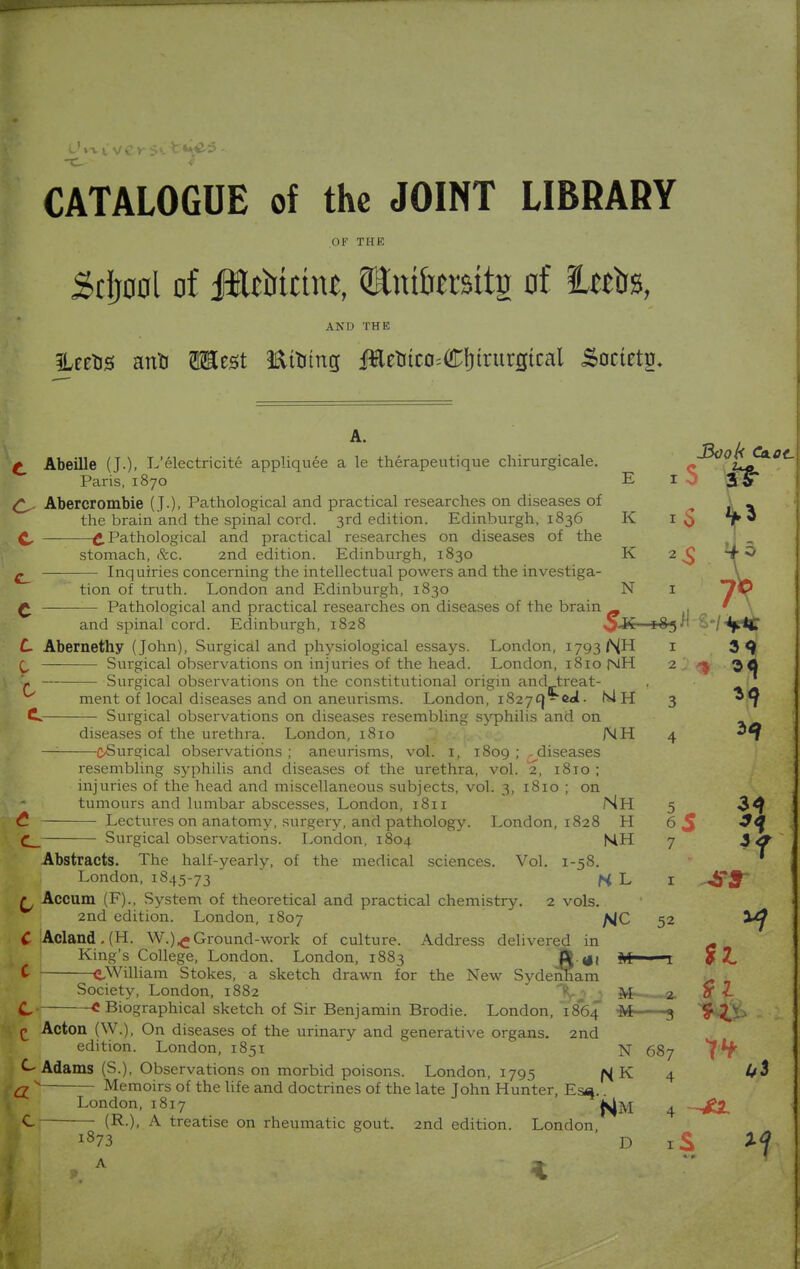 CATALOGUE of the JOINT LIBRARY
OF THE
School of Medicine, University of Leeds,
AND THE
Leeds and West Riding Medico-Chirurgical Society.
A.
Book Case
C Abeille (J.), L'électricité appliquée a le thérapeutique chirurgicale.
Paris, 1870 E 1 S
C Abercrombie (J.), Pathological and practical researches on diseases of
the brain and the spinal cord. 3rd edition. Edinburgh, 1836 K 1 S 43
C —— C Pathological and practical researches on diseases of the
stomach, &c. 2nd edition. Edinburgh, 1830 K 2 S 43
C —— Inquiries concerning the intellectual powers and the investiga-
tion of truth. London and Edinburgh, 1830 N 1 70
C —— Pathological and practical researches on diseases of the brain
and spinal cord. Edinburgh, 1828 S K 185
C Abernethy (John), Surgical and physiological essays. London, 1793 NH 1 39
C —— Surgical observations on injuries of the head. London, 1810 NH 2 39
C —— Surgical observations on the constitutional origin and treat-
ment of local diseases and on aneurisms. London, 1827 9th ed. NH 3 39
C —— Surgical observations on diseases resembling syphilis and on
diseases of the urethra. London, 1810 NH 4 39
—— C Surgical observations ; aneurisms, vol. 1, 1809 ; diseases
resembling syphilis and diseases of the urethra, vol. 2, 1810 ;
injuries of the head and miscellaneous subjects, vol. 3, 1810 ; on
tumours and lumbar abscesses, London, 1811 NH 5 39
C —— Lectures on anatomy, surgery, and pathology. London, 1828 H 6 S 39
C —— Surgical observations. London, 1804 NH 7 39
Abstracts. The half-yearly, of the medical sciences. Vol. 1-58.
London, 1845-73 N L 1 53
C Accum (F)., System of theoretical and practical chemistry. 2 vols.
2nd edition. London, 1807 NC 52 29
C Acland, (H. W.) C Ground-work of culture. Address delivered in
King's College, London. London, 1883 M 1 82
C —— C William Stokes, a sketch drawn for the New Sydenham
Society, London, 1882 M 2 82
C —— C Biographical sketch of Sir Benjamin Brodie. London, 1864 M 3
C Acton (W.), On diseases of the urinary and generative organs. 2nd
edition. London, 1851 N 687 74
C Adams (S.), Observations on morbid poisons. London, 1795 N K 4 43
a —— Memoirs of the life and doctrines of the late John Hunter, Esq.
London, 1817 NM 4 82
C —— (R.), A treatise on rheumatic gout. 2nd edition. London,
1873 D 1 S 29
A